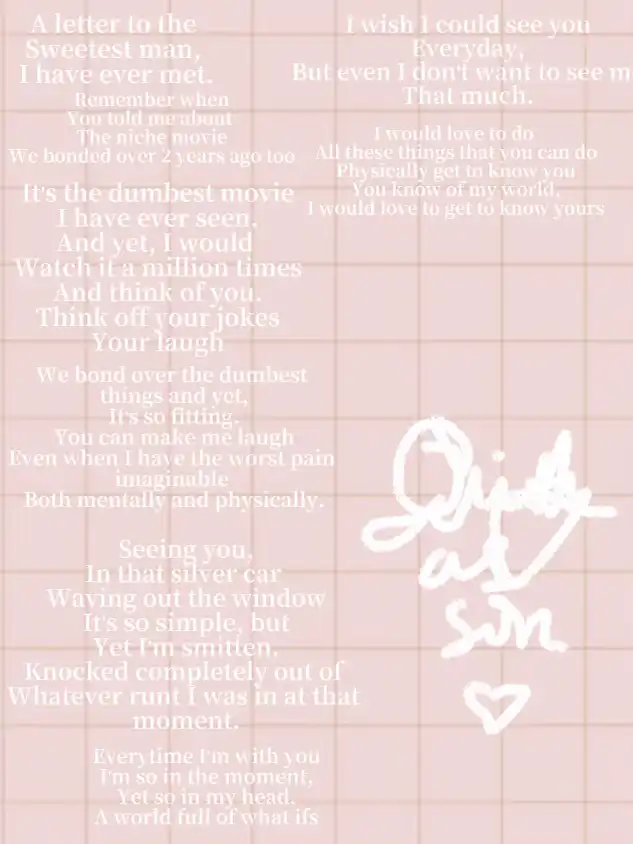 A letter to the
Sweetest man,
I have ever met.
Remember when
You told me about
The niche movie
We bonded over 2 years ago too
It's the dumbest movie
I have ever seen.
And yet, I would
Watch it a million times
And think of you.
Think off your jokes
Your laugh
We bond over the dumbest
things and yet,
It's so fitting.
You can make me laugh
Even when I have the worst pain
imaginable
Both mentally and physically.
Seeing you,
In that silver car
Waving out the window
It's so simple, but
Yet I'm smitten.
Knocked completely out of
Whatever runt I was in at that
moment.
Everytime I'm with you
I'm so in the moment,
Yet so in my head.
A world full of what ifs
I wish I could see you
Everyday,
But even I don't want to see m
That much.
I would love to do
All these things that you can do
Physically get to know you
You know of my world,
I would love to get to know yours
as
son